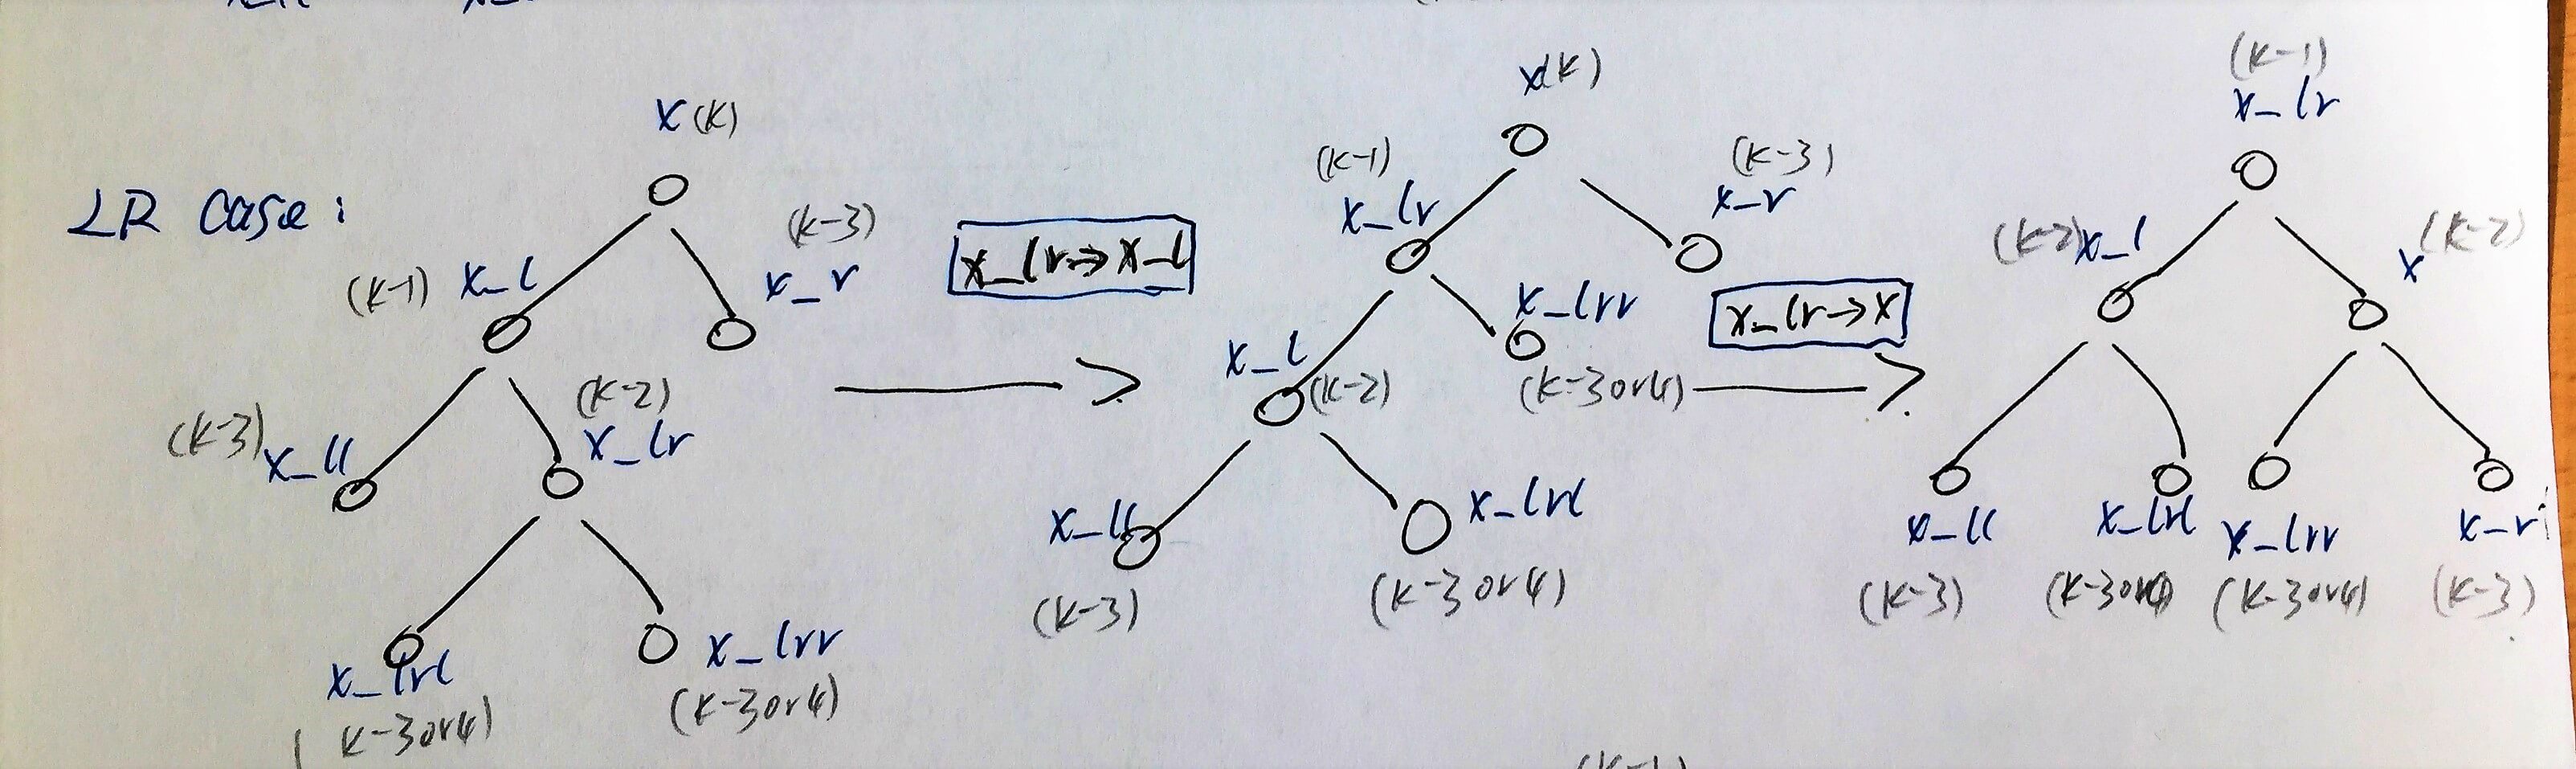 LR Case:
x (k)
(k-1) x_l
(k-3)
x_r
(k-3) x_ll
(k-2)
x_lr
x_lrl
(k-3or4)
x_lrr
(k-3or4)
x_lr→x_l
x(k)
(k-1)
x_lr
(k-3)
x_r
x_l
(k-2)
x_lrr
(k-3or4)
x_ll
(k-3)
x_lrl
(k-3or4)
x_lr→x
(k-1)
x_lr
(k-2) x_l
x (k-2)
x_ll
(k-3)
x_lrl
x_lrr
(k-3or4)
x_r
(k-3)
(k-1)